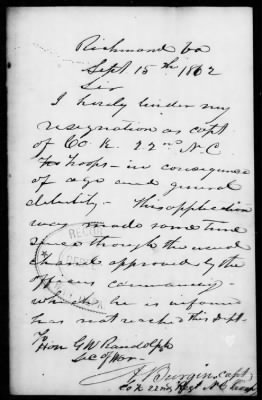 Richmond Va
Sept 15th 1862
Sir
I hereby tender my
resignation as capt
of Co K. 22nd N.C
Troops - in consequence
of age and general
debility - This application
was made some time
since through the usual
channel approved by the
officers commanding -
which he is informed
has not reached this dept -
To
Hon G W Randolph
Sec of War -
J Burgin, capt
Co K 22nd Regt N C Troops